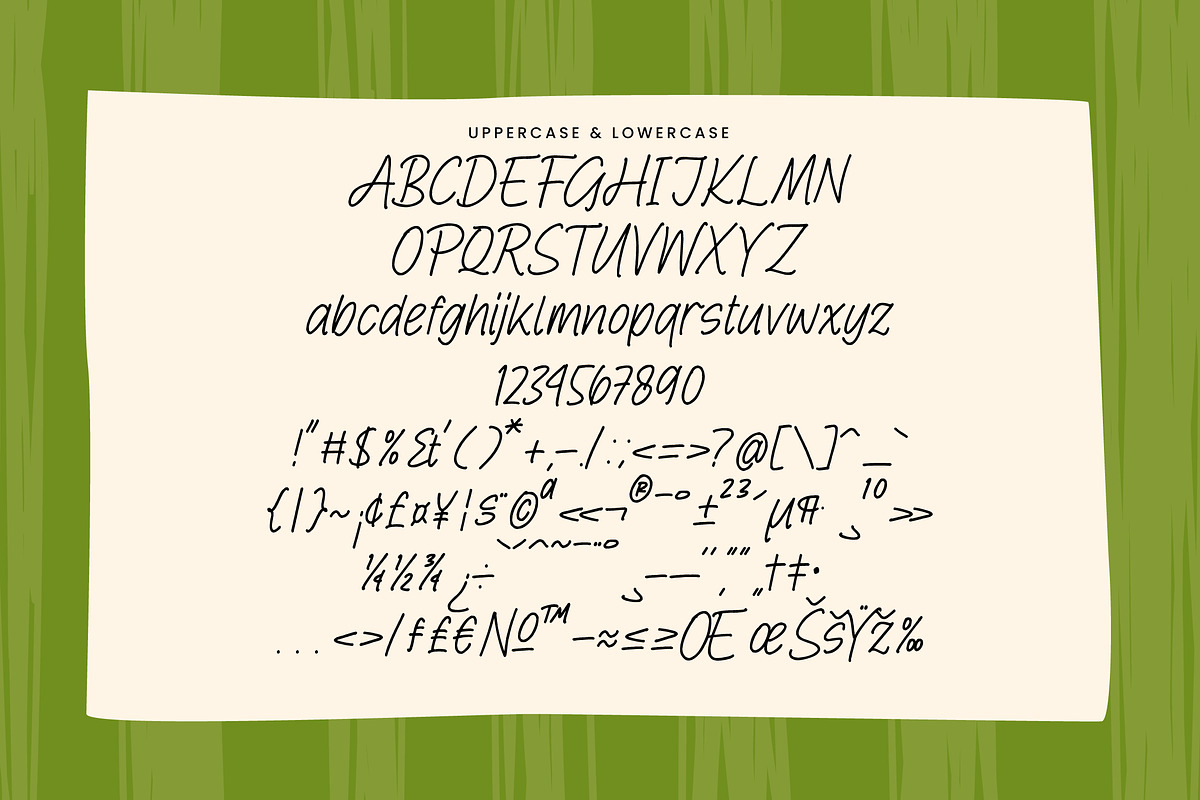 UPPERCASE & LOWERCASE
ABCDEFGHIJKLMN
OPQRSTUVWXYZ
abcdefghijklmnopqrstuvwxyz
1234567890
!"#$%&'()*+,-./:;<=>?@[\]^_`
{|}~¡¢£¤¥¦§¨©ª«¬®¯°±²³´µ¶·¸¹º»
¼½¾¿÷
...‹›⁄ƒ₤€№™−≈≤≥ŒœŠšŸž‰